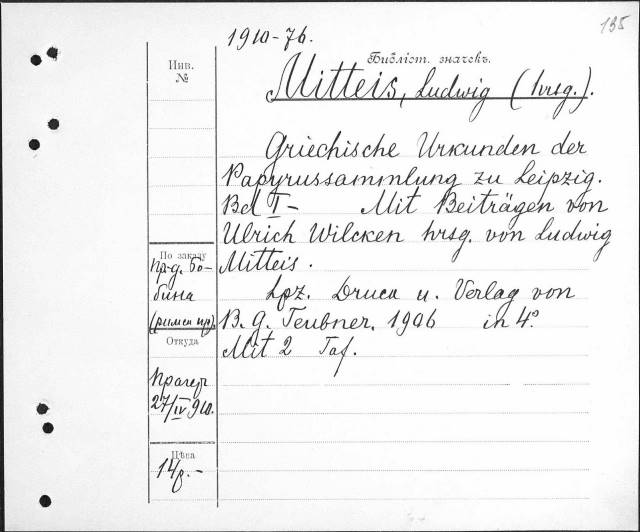 135
1910-76.
Библіот. значекъ.
Инв.
№
Mitteis, Ludwig (hrsg.).
Griechische Urkunden der
Papyrussammlung zu Leipzig.
Bd I- Mit Beiträgen von
Ulrich Wilcken hrsg. von Ludwig
Mitteis.
Lpz. Druck u. Verlag von
B. G. Teubner. 1906 in 4°
Mit 2 Taf.
По заказу
пр-д. Бо-
бина
Откуда
27/IV 910.
Цѣна
14р.-